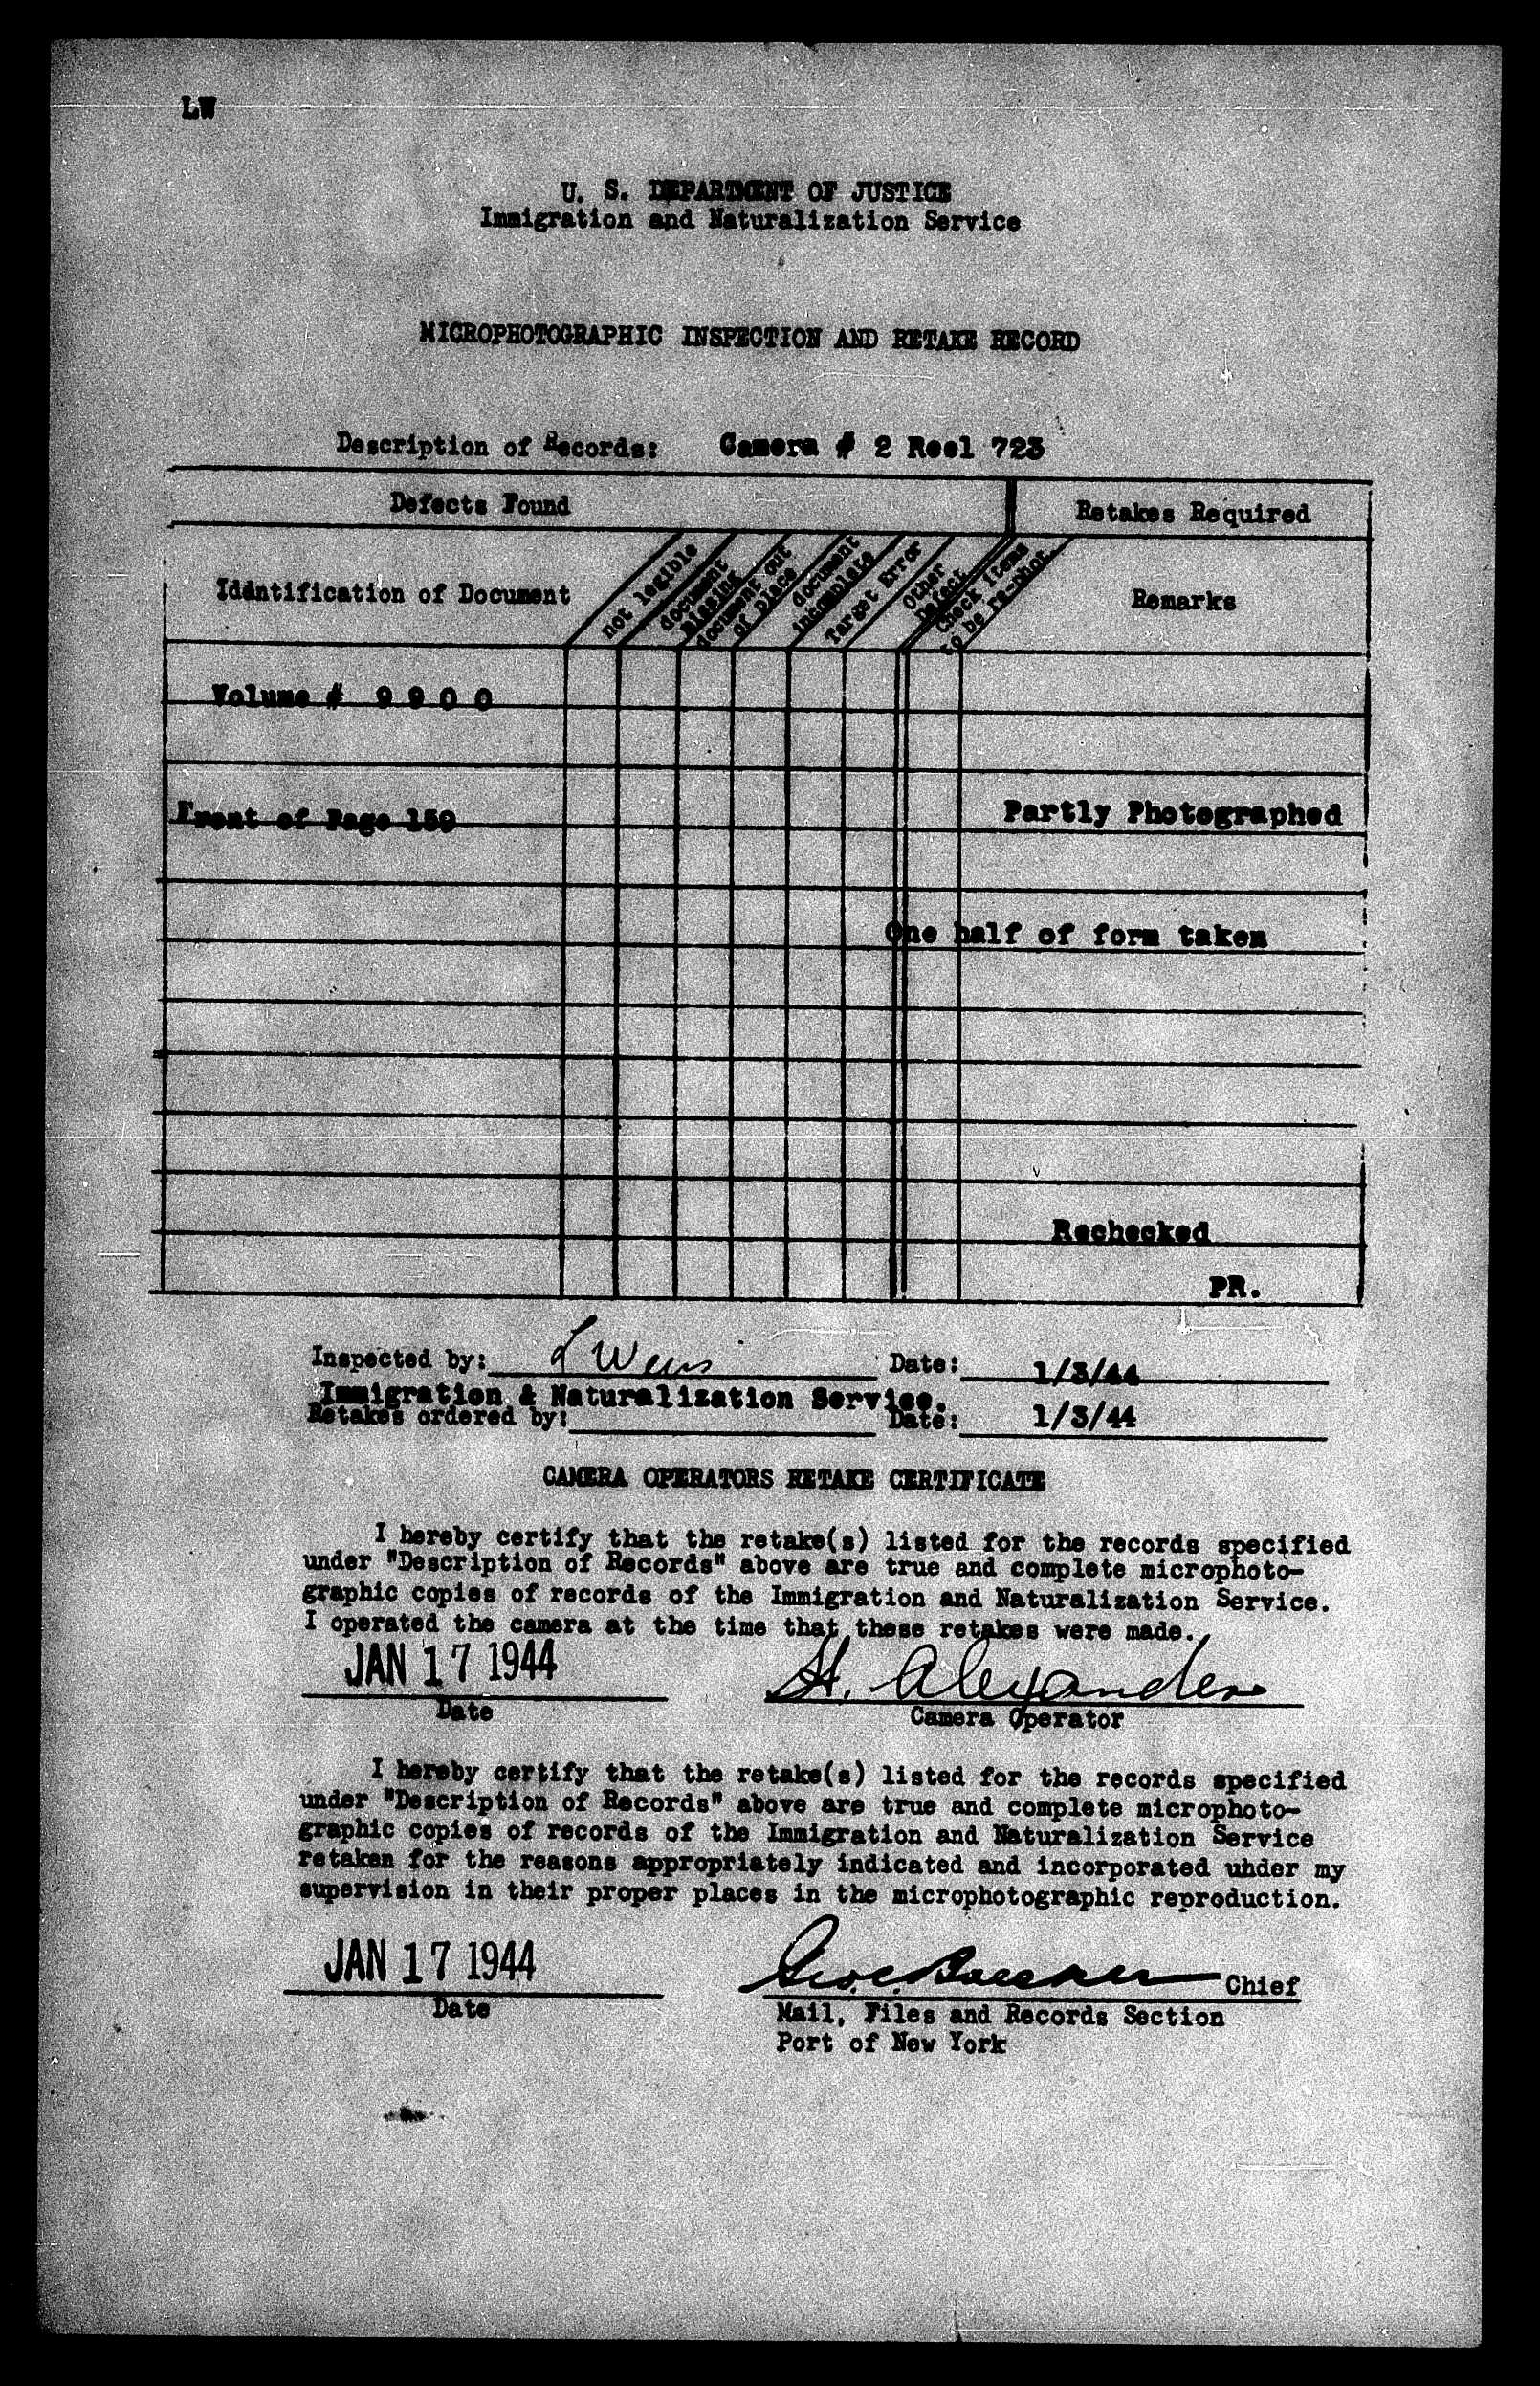 LW
U. S. DEPARTMENT OF JUSTICE
Immigration and Naturalization Service
MICROPHOTOGRAPHIC INSPECTION AND RETAKE RECORD
Description of Records: Camera # 2 Reel 723
Defects Found
Retakes Required
Idéntification of Document
not legible
document missing
document out of place
document incomplete
Target Error
Other Defect
Check items to be re-phot.
Remarks
Volume # 9 9 0 0
Front of Page 159
Partly Photographed
One half of form taken
Rechecked
PR.
Inspected by: L Weis Date: 1/3/44
Immigration & Naturalization Service.
Retakes ordered by: Date: 1/3/44
CAMERA OPERATORS RETAKE CERTIFICATE
I hereby certify that the retake(s) listed for the records specified
under "Description of Records" above are true and complete microphoto-
graphic copies of records of the Immigration and Naturalization Service.
I operated the camera at the time that these retakes were made.
JAN 17 1944 H. Alexander
Date Camera Operator
I hereby certify that the retake(s) listed for the records specified
under "Description of Records" above are true and complete microphoto-
graphic copies of records of the Immigration and Naturalization Service
retaken for the reasons appropriately indicated and incorporated uhder my
supervision in their proper places in the microphotographic reproduction.
JAN 17 1944 Chief
Date Mail, Files and Records Section
Port of New York